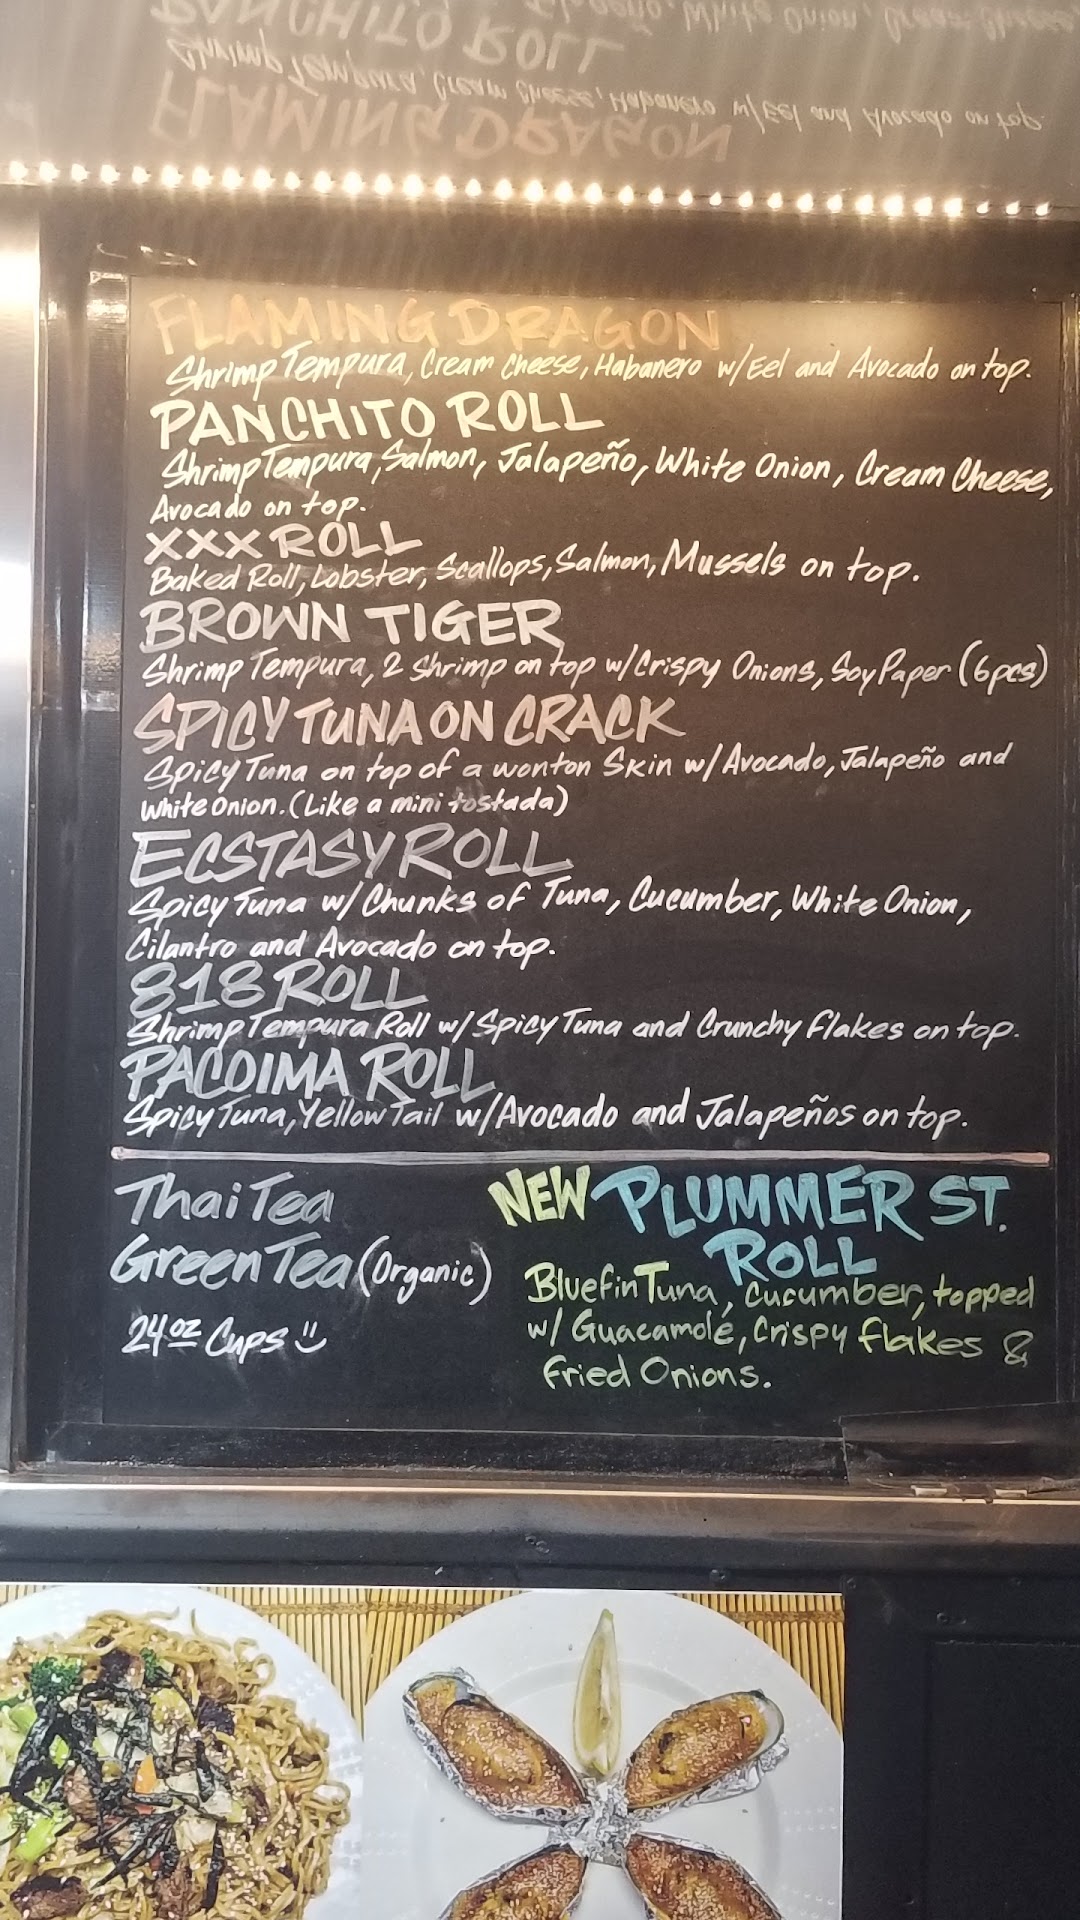 FLAMING DRAGON
Shrimp Tempura, Cream Cheese, Habanero w/Eel and Avocado on top.
PANCHITO ROLL
Shrimp Tempura, Salmon, Jalapeño, White Onion, Cream Cheese,
Avocado on top.
XXX ROLL
Baked Roll, Lobster, Scallops, Salmon, Mussels on top.
BROWN TIGER
Shrimp Tempura, 2 Shrimp on top w/Crispy Onions, Soy Paper (6pcs)
SPICY TUNA ON CRACK
Spicy Tuna on top of a wonton Skin w/Avocado, Jalapeño and
White Onion. (Like a mini tostada)
ECSTASY ROLL
Spicy Tuna w/ Chunks of Tuna, Cucumber, White Onion,
Cilantro and Avocado on top.
818 ROLL
Shrimp Tempura Roll w/Spicy Tuna and Crunchy Flakes on top.
PACOIMA ROLL
Spicy Tuna, Yellow Tail w/Avocado and Jalapeños on top.
Thai Tea
Green Tea (Organic)
24oz Cups
NEW PLUMMER ST.
ROLL
Bluefin Tuna, Cucumber, topped
w/ Guacamole, Crispy flakes &
Fried Onions.